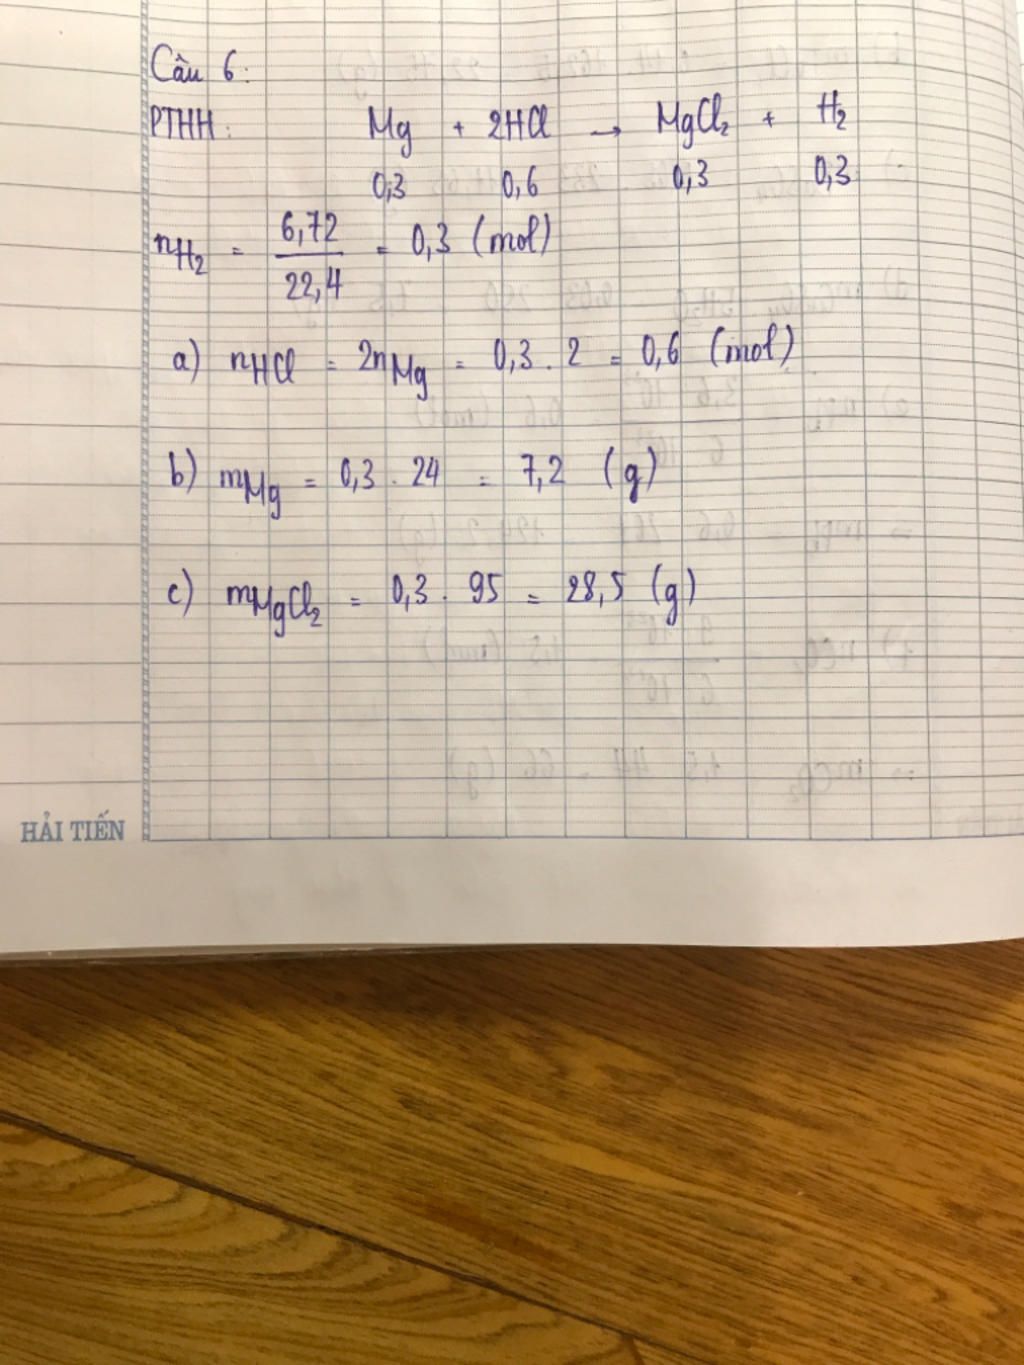 Câu 6:
PTHH: Mg + 2HCl → MgCl₂ + H₂
0,3 0,6 0,3 0,3
nH₂ = 6,72 / 22,4 = 0,3 (mol)
a) nHCl = 2nMg = 0,3 . 2 = 0,6 (mol)
b) mMg = 0,3 . 24 = 7,2 (g)
c) mMgCl₂ = 0,3 . 95 = 28,5 (g)
HẢI TIẾN